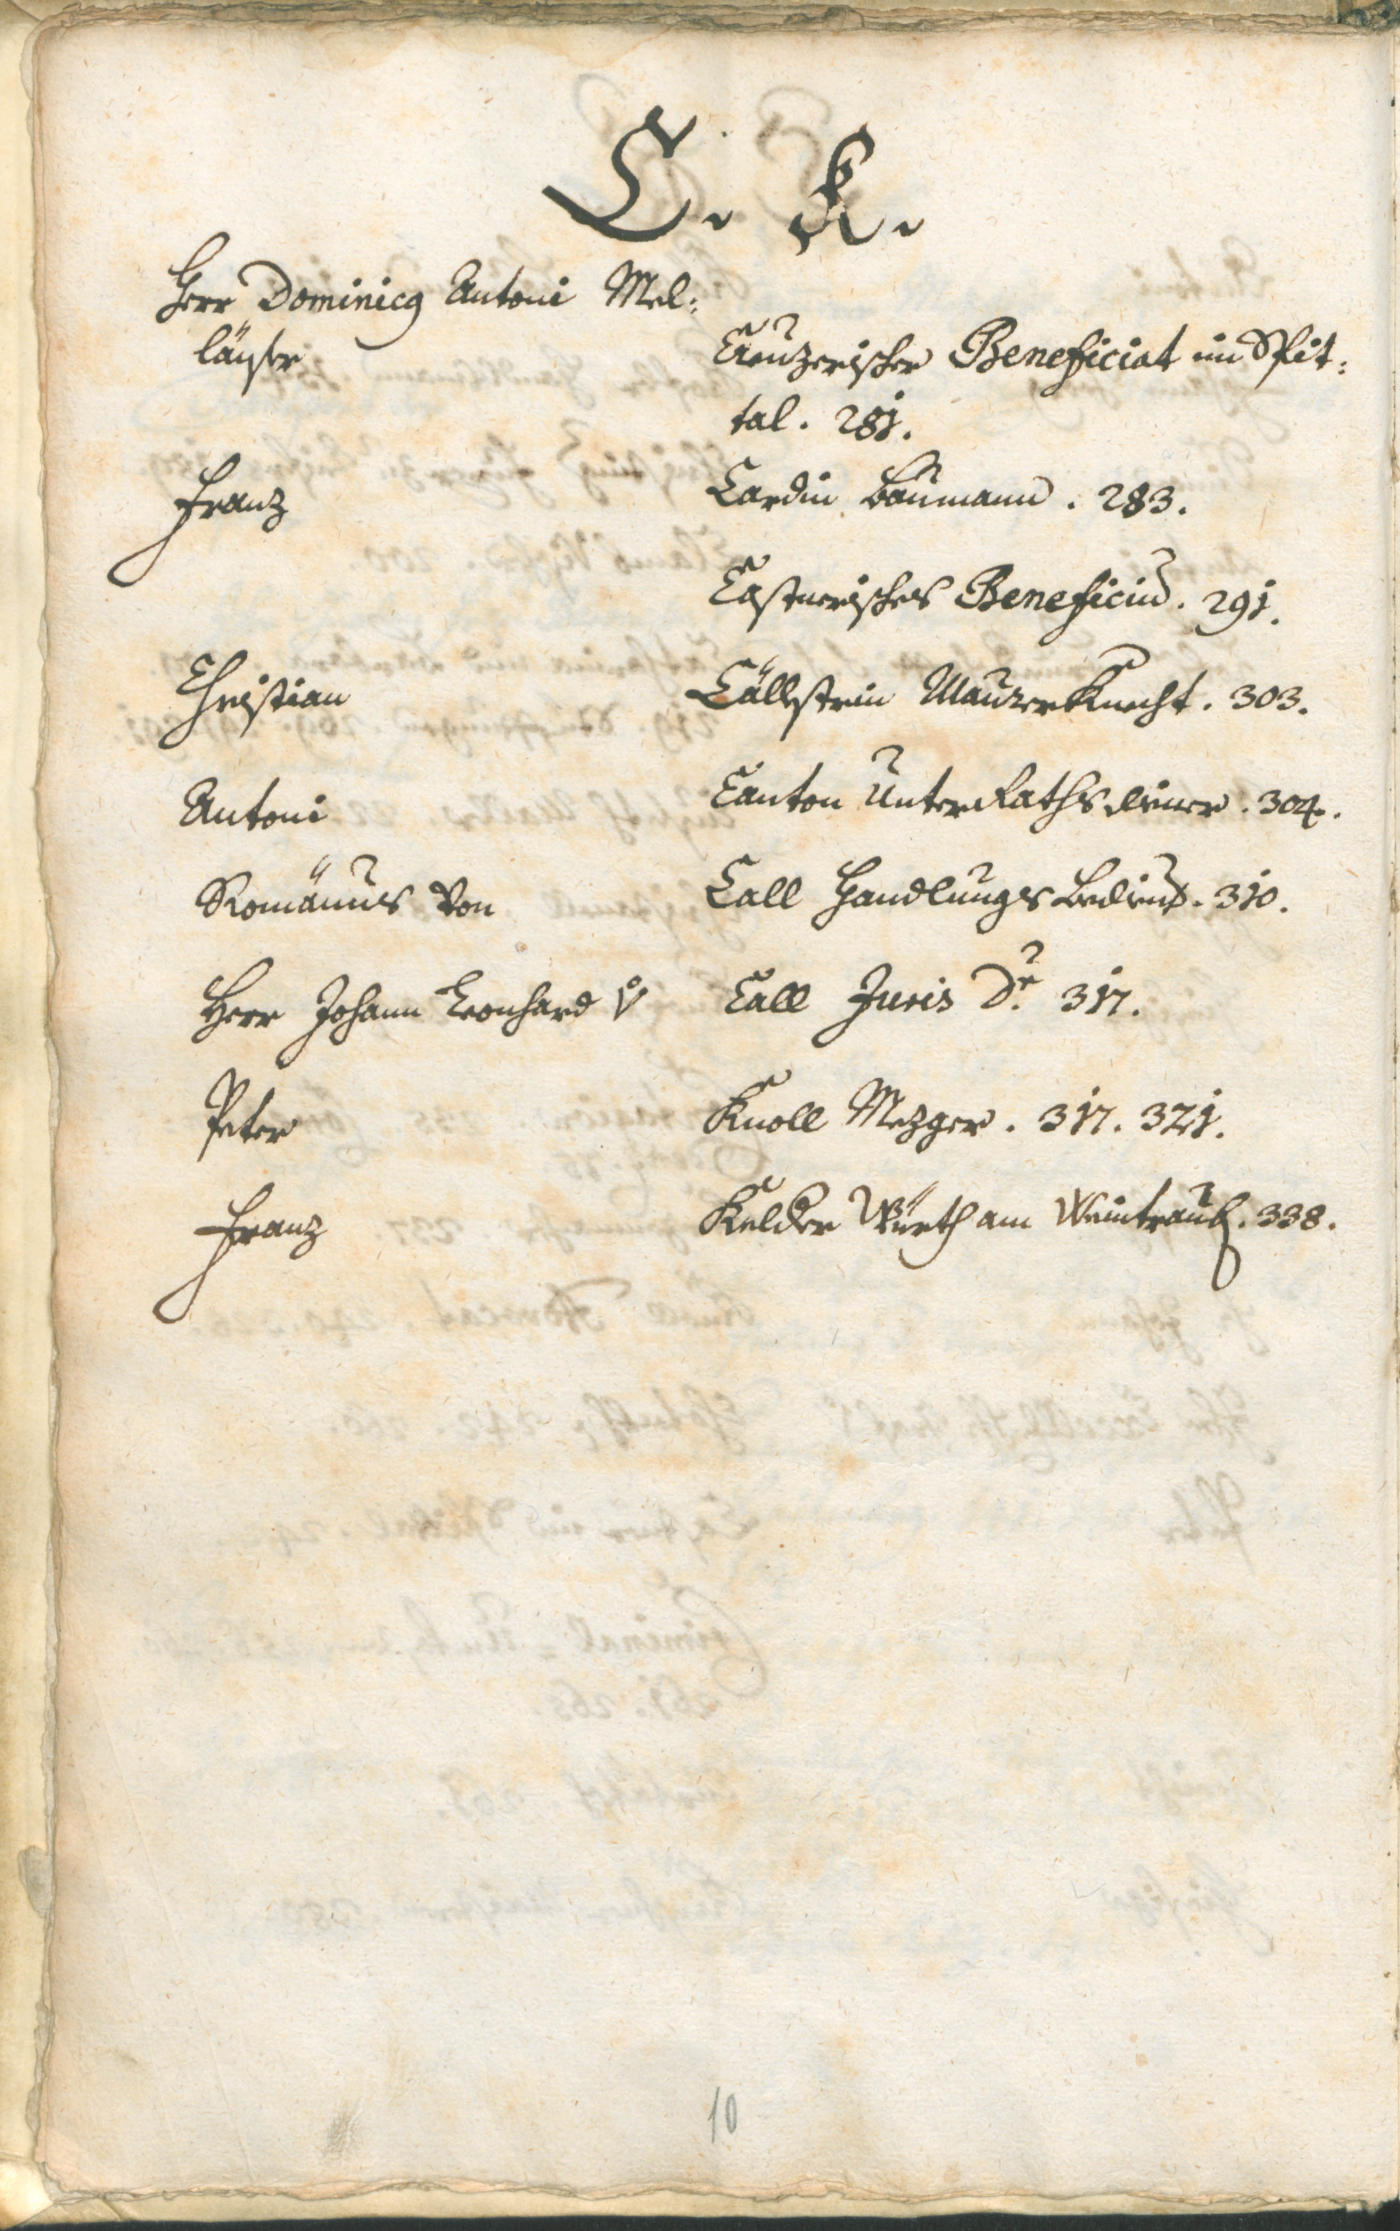 C. K.
Herr Dominicq Antoni Mel:
läuser
Creuzerischer Beneficiat im Spit:
tal. 281.
Franz Cardin Baumann. 283.
Castnerisches Beneficiũ. 291.
Christian Cällstein Maurer Knecht. 303.
Antoni Canton Unter Raths diener. 304.
Romänus Von Call Handlungs bedienter. 310.
Herr Johann Leonhard V Call Juris Dr. 317.
Peter Knoll Mezger. 317. 321.
Franz Kelder Würth am Weintraub. 338.
10